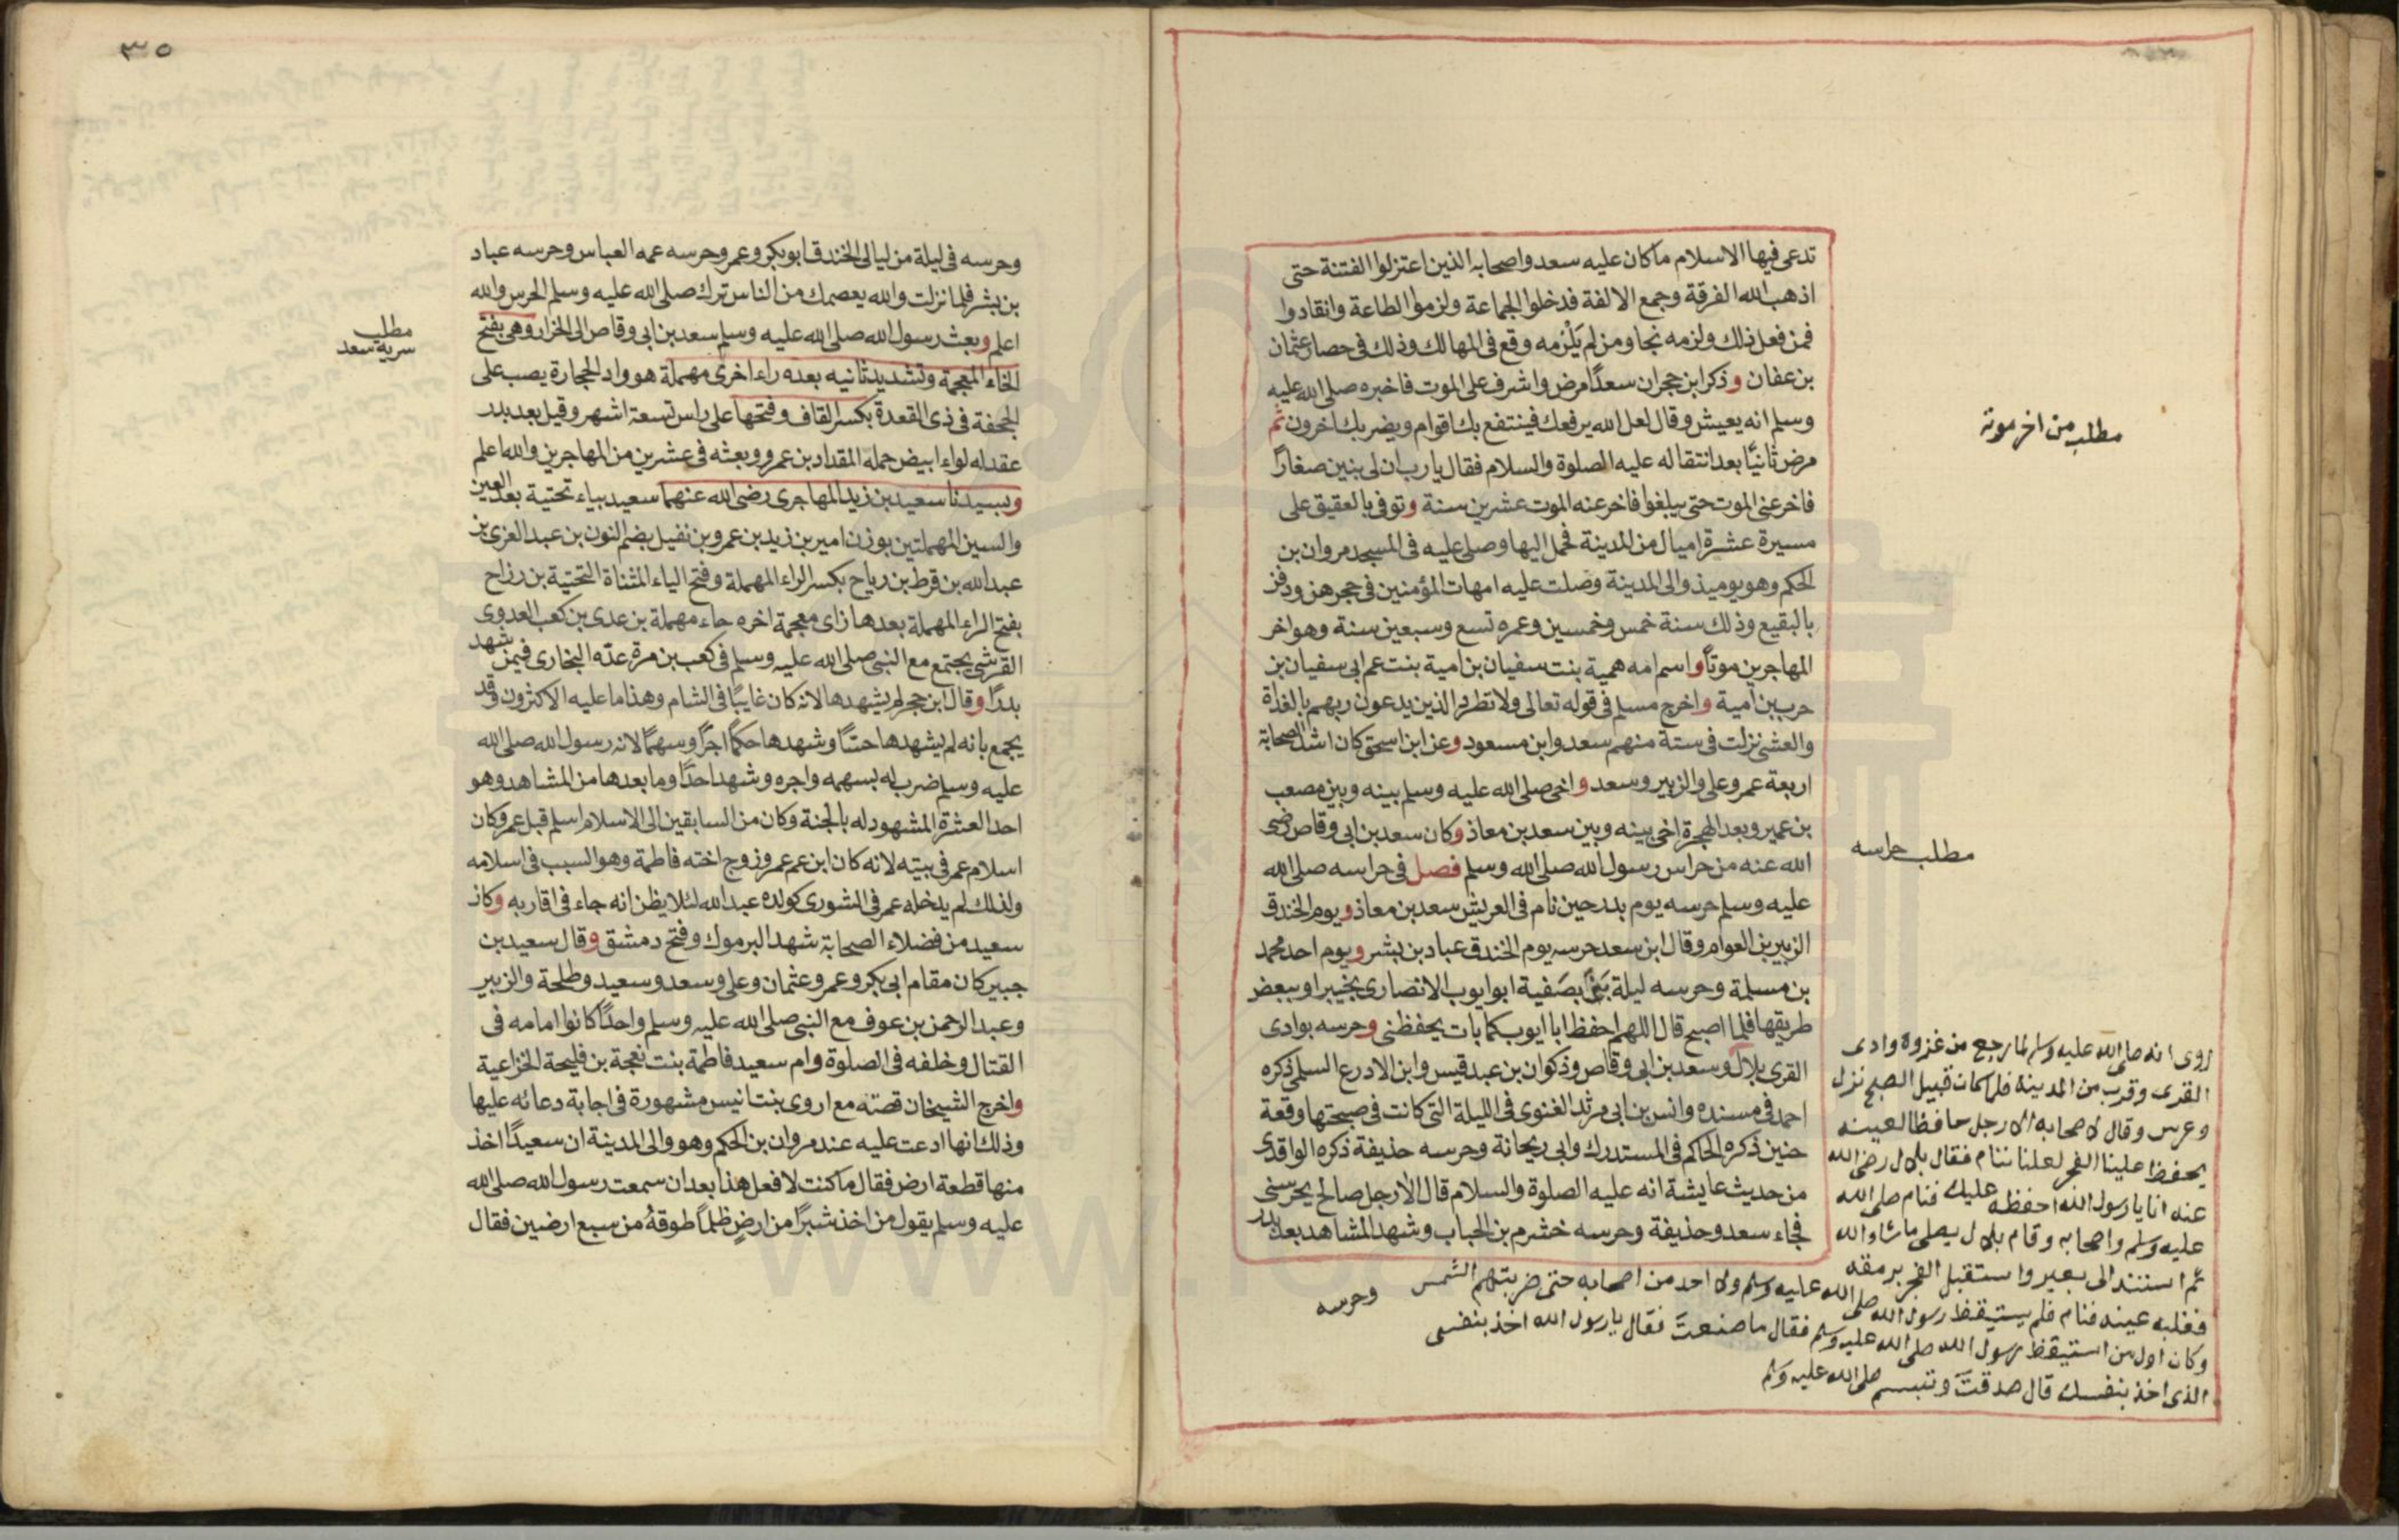 تدعى فيها الاسلام ما كان عليه سعد واصحابه الذين اعتزلوا الفتنة حتى
اذهب الله الفرقة وجمع الالفة فدخلوا الجماعة ولزموا الطاعة وانقادوا
فمن فعل ذلك ولزمه نجا ومن لم يَلْزمه وقع فى المهالك وذلك فى حصار عثمان
بن عفان وذكر ابن حجر ان سعدًا مرض واشرف على الموت فاخبره صلى الله عليه
وسلم انه يعيش وقال لعل الله يرفعك فينتفع بك اقوام ويضر بك اخرون ثم
مرض ثانيًا بعد انتقاله عليه الصلوة والسلام فقال يا رب ان لى بنين صغارًا
فاخر عنى الموت حتى يبلغوا فاخر عنه الموت عشرين سنة وتوفى بالعقيق على
مسيرة عشرة اميال من المدينة فحمل اليها وصلى عليه فى المسجد مروان بن
الحكم وهو يوميذ والى المدينة وصلت عليه امهات المؤمنين فى حجرهن ودفن
بالبقيع وذلك سنة خمس وخمسين وعمره تسع وسبعين سنة وهو اخر
المهاجرين موتًا واسم امه همية بنت سفيان بن امية بنت عم ابى سفيان بن
حرب بن امية واخرج مسلم فى قوله تعالى ولا تطرد الذين يدعون ربهم بالغداة
والعشى نزلت فى ستة منهم سعد وابن مسعود وعن ابن اسحق كان اشد الصحابة
اربعة عمر وعلى والزبير وسعد واخى صلى الله عليه وسلم بينه وبين مصعب
بن عمير وبعد الهجرة اخى بينه وبين سعد بن معاذ وكان سعد بن ابى وقاص رضى
الله عنه من حراس رسول الله صلى الله وسلم فصل فى حراسه صلى الله
عليه وسلم حرسه يوم بدر حين نام فى العريش سعد بن معاذ ويوم الخندق
الزبير بن العوام وقال ابن سعد حرسه يوم الخندق عباد بن بشر ويوم احد محمد
بن مسلمة وحرسه ليلة بَنَى بصَفية ابو ايوب الانصارى بخيبر او ببعض
طريقها فلما اصبح قال اللهم احفظ ابا ايوب كما بات يحفظنى وحرسه بوادى
القرى بلال وسعد بن ابى وقاص وذكوان بن عبد قيس وابن الادرع السلمى ذكره
احمد فى مسنده وانس بن ابى مرثد الغنوى فى الليلة التى كانت فى صبيحتها وقعة
حنين ذكره الحاكم فى المستدرك وابى ريحانة وحرسه حذيفة ذكره الواقدى
من حديث عايشة انه عليه الصلوة والسلام قال الا رجل صالح يحرسنى
فجاء سعد وحذيفة وحرسه خشرم بن الحباب وشهد المشاهد بعد بدر
وحرسه
مطلب من اخر موته
مطلب حراسه
روى انه صلى الله عليه وسلم لما رجع من غزوة وادى
القرى وقرب من المدينة فلما كان قبيل الصبح نزل
وعرس وقال لاصحابه الا رجل حافظ لعينه
يحفظ علينا الفجر لعلنا ننام فقال بلال رضى الله
عنه انا يا رسول الله احفظه عليك فنام صلى الله
عليه وسلم واصحابه وقام بلال يصلى ما شاء الله
ثم استند الى بعير واستقبل الفجر يرمقه
فغلبه عينه فنام فلم يستيقظ رسول الله صلى الله عليه وسلم ولا احد من اصحابه حتى ضربتهم الشمس
وكان اول من استيقظ رسول الله صلى الله عليه وسلم فقال ما صنعتَ فقال يا رسول الله اخذ بنفسى
الذى اخذ بنفسك قال صدقتَ وتبسم صلى الله عليه وسلم
٣٥
وحرسه فى ليلة من ليالى الخندق ابو بكر وعمر وحرسه عمه العباس وحرسه عباد
بن بشر فلما نزلت والله يعصمك من الناس ترك صلى الله عليه وسلم الحرس والله
اعلم وبعث رسول الله صلى الله عليه وسلم سعد بن ابى وقاص الى الخرار وهى بفتح
الخاء المعجمة وتشديد ثانيه بعده راء اخرى مهملة هو واد الحجارة يصب على
الجحفة فى ذى القعدة بكسر القاف وفتحها على راس تسعة اشهر وقيل بعد بدر
عقد له لواء ابيض حمله المقداد بن عمرو وبعثه فى عشرين من المهاجرين والله اعلم
وبسيدنا سعيد بن زيد المهاجرى رضى الله عنهما سعيد بياء تحتية بعد العين
والسين المهملتين بوزن امير بن زيد بن عمرو بن نفيل بضم النون بن عبد العزى بن
عبد الله بن قرط بن رياح بكسر الراء المهملة وفتح الياء المثناة التحتية بن رزاح
بفتح الراء المهملة بعدها زاى معجمة اخره حاء مهملة بن عدى بن كعب العدوى
القرشى يجتمع مع النبى صلى الله عليه وسلم فى كعب بن مرة عدّه البخارى فيمن شهد
بدرًا وقال ابن حجر لم يشهدها لانه كان غايبًا فى الشام وهذا ما عليه الاكثرون وقد
يجمع بانه لم يشهدها حسًّا وشهدها حكمًا اجرًا وسهمًا لانه رسول الله صلى الله
عليه وسلم ضرب له بسهمه واجره وشهد احدًا وما بعدها من المشاهد وهو
احد العشرة المشهود له بالجنة وكان من السابقين الى الاسلام اسلم قبل عمر وكان
اسلام عمر فى بيته لانه كان ابن عم عمر وزوج اخته فاطمة وهو السبب فى اسلامه
ولذلك لم يدخله عمر فى الشورى كولده عبد الله لئلا يظن انه جاء فى اقاربه وكان
سعيد من فضلاء الصحابة شهد اليرموك وفتح دمشق وقال سعيد بن
جبير كان مقام ابى بكر وعمر وعثمان وعلى وسعد وسعيد وطلحة والزبير
وعبد الرحمن بن عوف مع النبى صلى الله عليه وسلم واحدًا كانوا امامه فى
القتال وخلفه فى الصلوة وام سعيد فاطمة بنت نعجة بن فليحة الخزاعية
واخرج الشيخان قصته مع اروى بنت انيس مشهورة فى اجابة دعائه عليها
وذلك انها ادعت عليه عند مروان بن الحكم وهو والى المدينة ان سعيدًا اخذ
منها قطعة ارض فقال ما كنت لافعل هذا بعد ان سمعت رسول الله صلى الله
عليه وسلم يقول من اخذ شبرًا من ارضٍ ظلمًا طوقهُ من سبع ارضين فقال
مطلب
سرية سعد